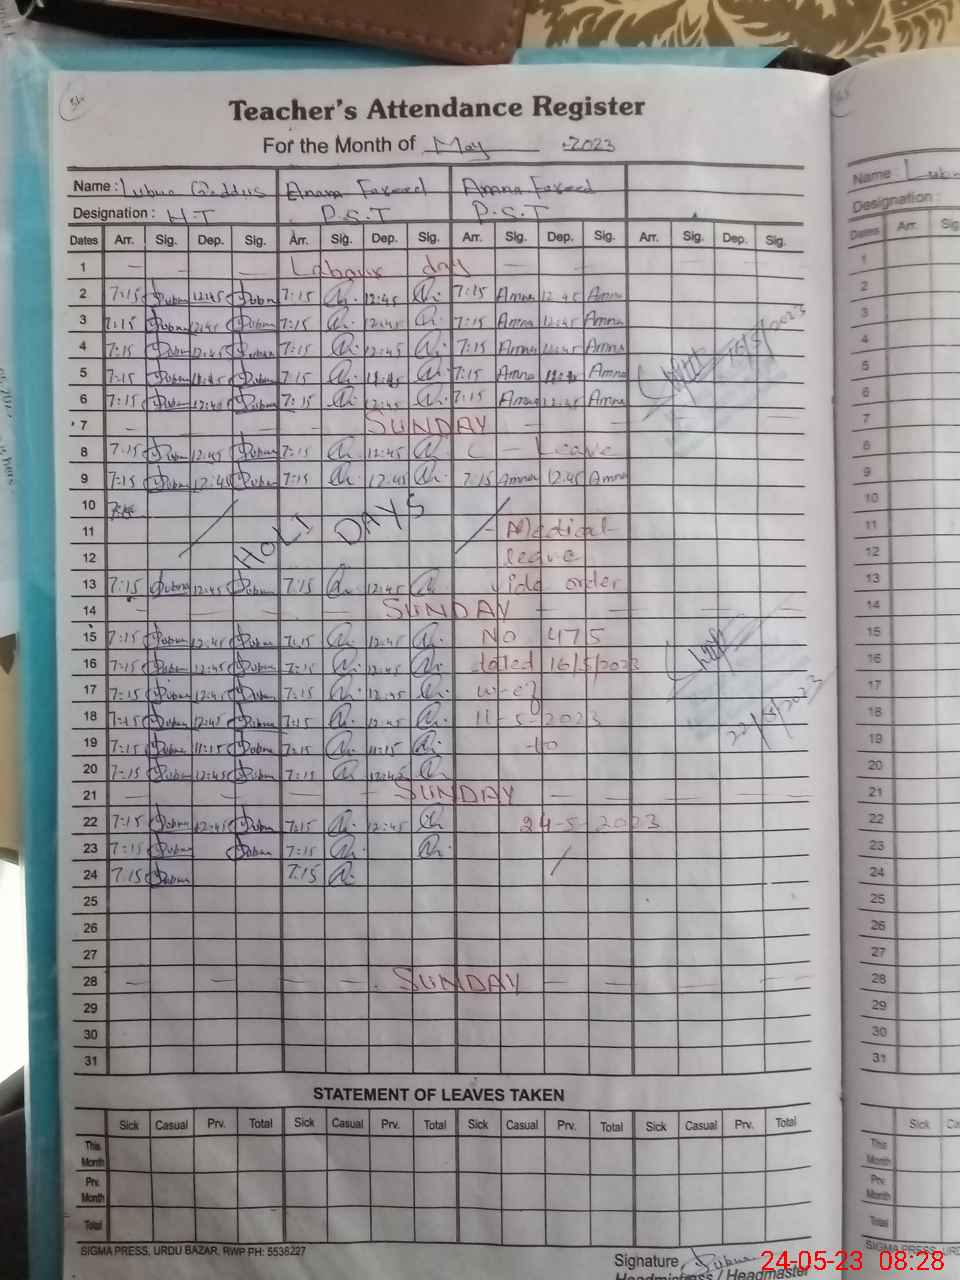 Teacher's Attendance Register
For the Month of May 2023
Name : Lubna Quddus Amna Fareed Amna Fareed
Designation : H.T P.S.T P.S.T
Dates Arr. Sig. Dep. Sig. Arr. Sig. Dep. Sig. Arr. Sig. Dep. Sig. Arr. Sig. Dep. Sig.
1 Labour day
2 7:15 Lubna 12:45 Lubna 7:15 12:45 7:15 Amna 12:45 Amna
3 7:15 Lubna 12:45 Lubna 7:15 12:45 7:15 Amna 12:45 Amna
4 7:15 Lubna 12:45 Lubna 7:15 12:45 7:15 Amna 12:45 Amna
5 7:15 Lubna Lubna 7:15 7:15 Amna Amna
6 7:15 Lubna 12:45 Lubna 7:15 12:45 7:15 Amna 12:45 Amna
16/5/2023
7 SUNDAY
8 7:15 Lubna 12:45 Lubna 7:15 12:45 C - Leave
9 7:15 Lubna 12:45 Lubna 7:15 12:45 7:15 Amna 12:45 Amna
10
HOLI DAYS
11 Medical
12 leave
13 7:15 Lubna 12:45 Lubna 7:15 12:45 vide order
14 SUNDAY
15 7:15 Lubna 12:45 Lubna 7:15 12:45 No 475
16 7:15 Lubna 12:45 Lubna 7:15 12:45 dated 16/5/2023
17 7:15 Lubna 12:45 Lubna 7:15 12:45 w-ef
18 7:15 Lubna 12:45 Lubna 7:15 12:45 11-5-2023
22/5/2023
19 7:15 Lubna 11:15 Lubna 7:15 11:15 to
20 7:15 Lubna 12:45 Lubna 7:15 12:45
21 SUNDAY
22 7:15 Lubna 12:45 Lubna 7:15 12:45 24-5-2023
23 7:15 Lubna Lubna 7:15
24 7:15 Lubna 7:15
25
26
27
28 SUNDAY
29
30
31
STATEMENT OF LEAVES TAKEN
Sick Casual Prv. Total Sick Casual Prv. Total Sick Casual Prv. Total Sick Casual Prv. Total
This Month
Prv. Month
Total
SIGMA PRESS, URDU BAZAR, RWP PH: 5536227
Signature Lubna
Headmistress / Headmaster
24-05-23 08:28
Name :
Designation :
Dates Arr. Sig.
1
2
3
4
5
6
7
8
9
10
11
12
13
14
15
16
17
18
19
20
21
22
23
24
25
26
27
28
29
30
31
Sick
This Month
Prv. Month
Total